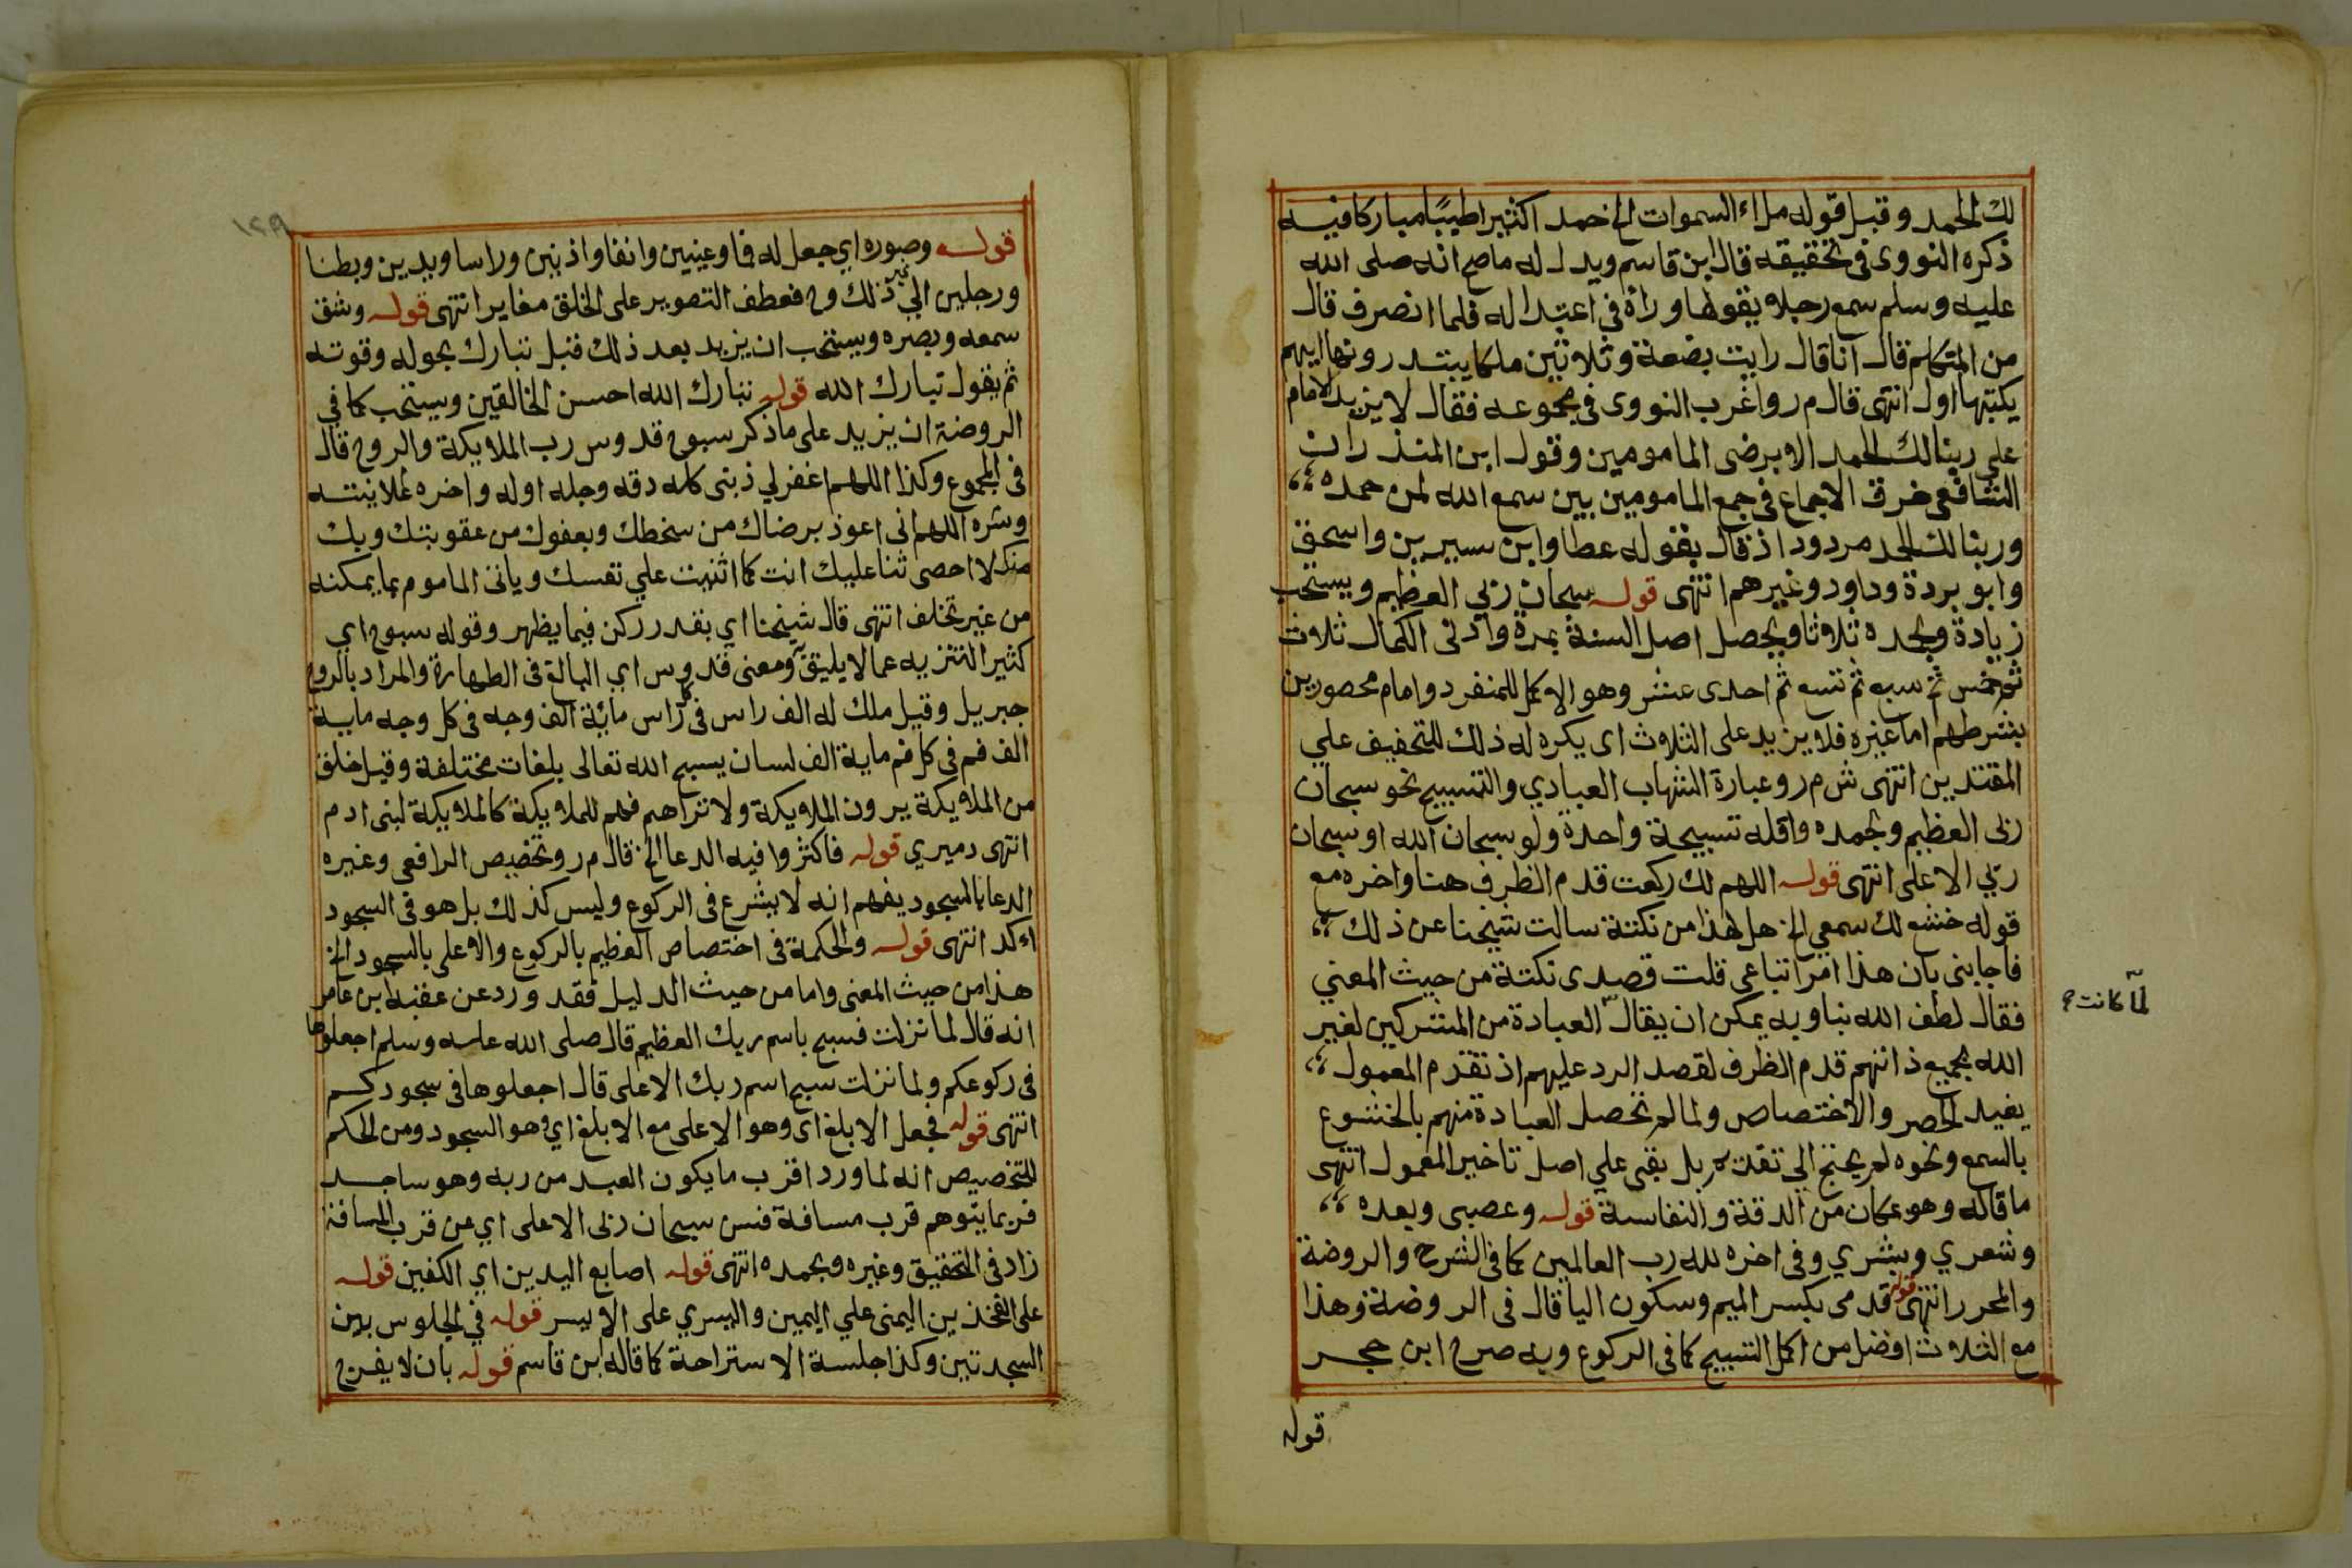 لك الحمد وقبل قوله ملاء السموات الخ حمدا كثيرا طيبًا مباركا فيه
ذكره النووى فى تحقيقه قال ابن قاسم ويدل له ما صح انه صلى الله
عليه وسلم سمع رجلا يقولها وراه فى اعتدا له فلما انصرف قال
من المتكلم قال انا قال رايت بضعة وثلاثين ملكا يبتدرونها ايهم
يكتبها اول انتهى قال م ر واغرب النووى فى مجموعه فقال لا يزيد الامام
على ربنا لك الحمد الا برضى المامومين وقول ابن المنذر ان
الشافعى خرق الاجماع فى جمع المامومين بين سمع الله لمن حمده
وربنا لك الحمد مردود اذ قال بقوله عطا وابن سيرين واسحق
وابو بردة وداود وغيرهم انتهى قوله سبحان ربي العظيم ويستحب
زيادة وبحمده ثلاثا ويحصل اصل السنة بمرة وادنى الكمال ثلاث
ثم خمس ثم سبع ثم تسع ثم احدى عشر وهو الاكمل للمنفرد وامام محصورين
بشرطهم اما غيره فلا يزيد على الثلاث اى يكره له ذلك للتخفيف علي
المقتدين انتهى ش م ر وعبارة الشهاب العبادي والتسبيح نحو سبحان
ربى العظيم وبحمده واقله تسبيحة واحدة ولو سبحان الله او سبحان
ربي الاعلى انتهى قوله اللهم لك ركعت قدم الظرف هنا واخره مع
قوله خشع لك سمعي الخ هل لهذا من نكتة سالت شيخنا عن ذلك
فاجابنى بان هذا امر اتباعى قلت قصدى نكتة من حيث المعني
فقال لطف الله بنا وبه يمكن ان يقال العبادة من المشركين لغير
لما كانت
الله بجميع ذاتهم قدم الظرف لقصد الرد عليهم اذ تقدم المعمول
يفيد الحصر والاختصاص ولما لم تحصل العبادة منهم بالخشوع
بالسمع ونحوه لم يحتج الي تقديم بل بقى علي اصل تاخير المعمول انتهى
ما قاله وهو بمكان من الدقة والنفاسة قوله وعصبى وبعده
وشعري وبشري وفى اخره لله رب العالمين كما فى الشرح والروضة
والمحرر انتهى قوله قدمى بكسر الميم وسكون اليا قال فى الروضة وهذا
مع الثلاث افضل من اكمل التسبيح كما فى الركوع وبه صرح ابن حجر
قوله
١٢٩
قوله وصوره اي جعل له فما وعينين وانفا واذنين وراسا ويدين وبطنا
ورجلين الي غير ذلك وح فعطف التصوير على الخلق مغاير انتهى قوله وشق
سمعه وبصره ويستحب ان يزيد بعد ذلك قبل تبارك بحوله وقوته
ثم يقول تبارك الله قوله تبارك الله احسن الخالقين ويستحب كما في
الروضة ان يزيد على ما ذكر سبوح قدوس رب الملايكة والروح قال
فى المجموع وكذا اللهم اغفر لي ذنبى كله دقه وجله اوله واخره علانيته
وسره اللهم انى اعوذ برضاك من سخطك وبعفوك من عقوبتك وبك
منك لا احصى ثنا عليك انت كما اثنيت علي نفسك وياتى الماموم بما يمكنه
من غير تخلف انتهى قال شيخنا اي بقدر ركن فيما يظهر وقوله سبوح اي
كثير التنزيه عما لا يليق به ومعنى قدوس اي البالغ فى الطهارة والمراد بالروح
جبريل وقيل ملك له الف راس فى كل راس مائة الف وجه فى كل وجه ماية
الف فم فى كل فم ماية الف لسان يسبح الله تعالى بلغات مختلفة وقيل خلق
من الملايكة يرون الملايكة ولا تراهم فهم للملايكة كالملايكة لبنى ادم
انتهى دميري قوله فاكثروا فيه الدعا الخ قال م ر وتخصيص الرافعى وغيره
الدعا بالسجود يفهم انه لا يشرع فى الركوع وليس كذلك بل هو فى السجود
اءكد انتهى قوله والحكمة فى اختصاص العظيم بالركوع والاعلى بالسجود الخ
هذا من حيث المعنى واما من حيث الدليل فقد ورد عن عقبة ابن عامر
انه قال لما نزلت فسبح باسم ربك العظيم قال صلى الله عليه وسلم اجعلوها
فى ركوعكم ولما نزلت سبح اسم ربك الاعلى قال اجعلوها فى سجودكم
انتهى قوله فجعل الابلغ اى وهو الاعلى مع الابلغ اي وهو السجود ومن الحكم
للتخصيص انه لما ورد اقرب ما يكون العبد من ربه وهو ساجد
فربما يتوهم قرب مسافة فسن سبحان ربى الاعلى اي عن قرب المسافة
زاد فى التحقيق وغيره وبحمده انتهى قوله اصابع اليدين اي الكفين قوله
على الفخذين اليمنى علي اليمين واليسري على الايسر قوله في الجلوس بين
السجدتين وكذا جلسة الاستراحة كما قاله ابن قاسم قوله بان لا يفرج